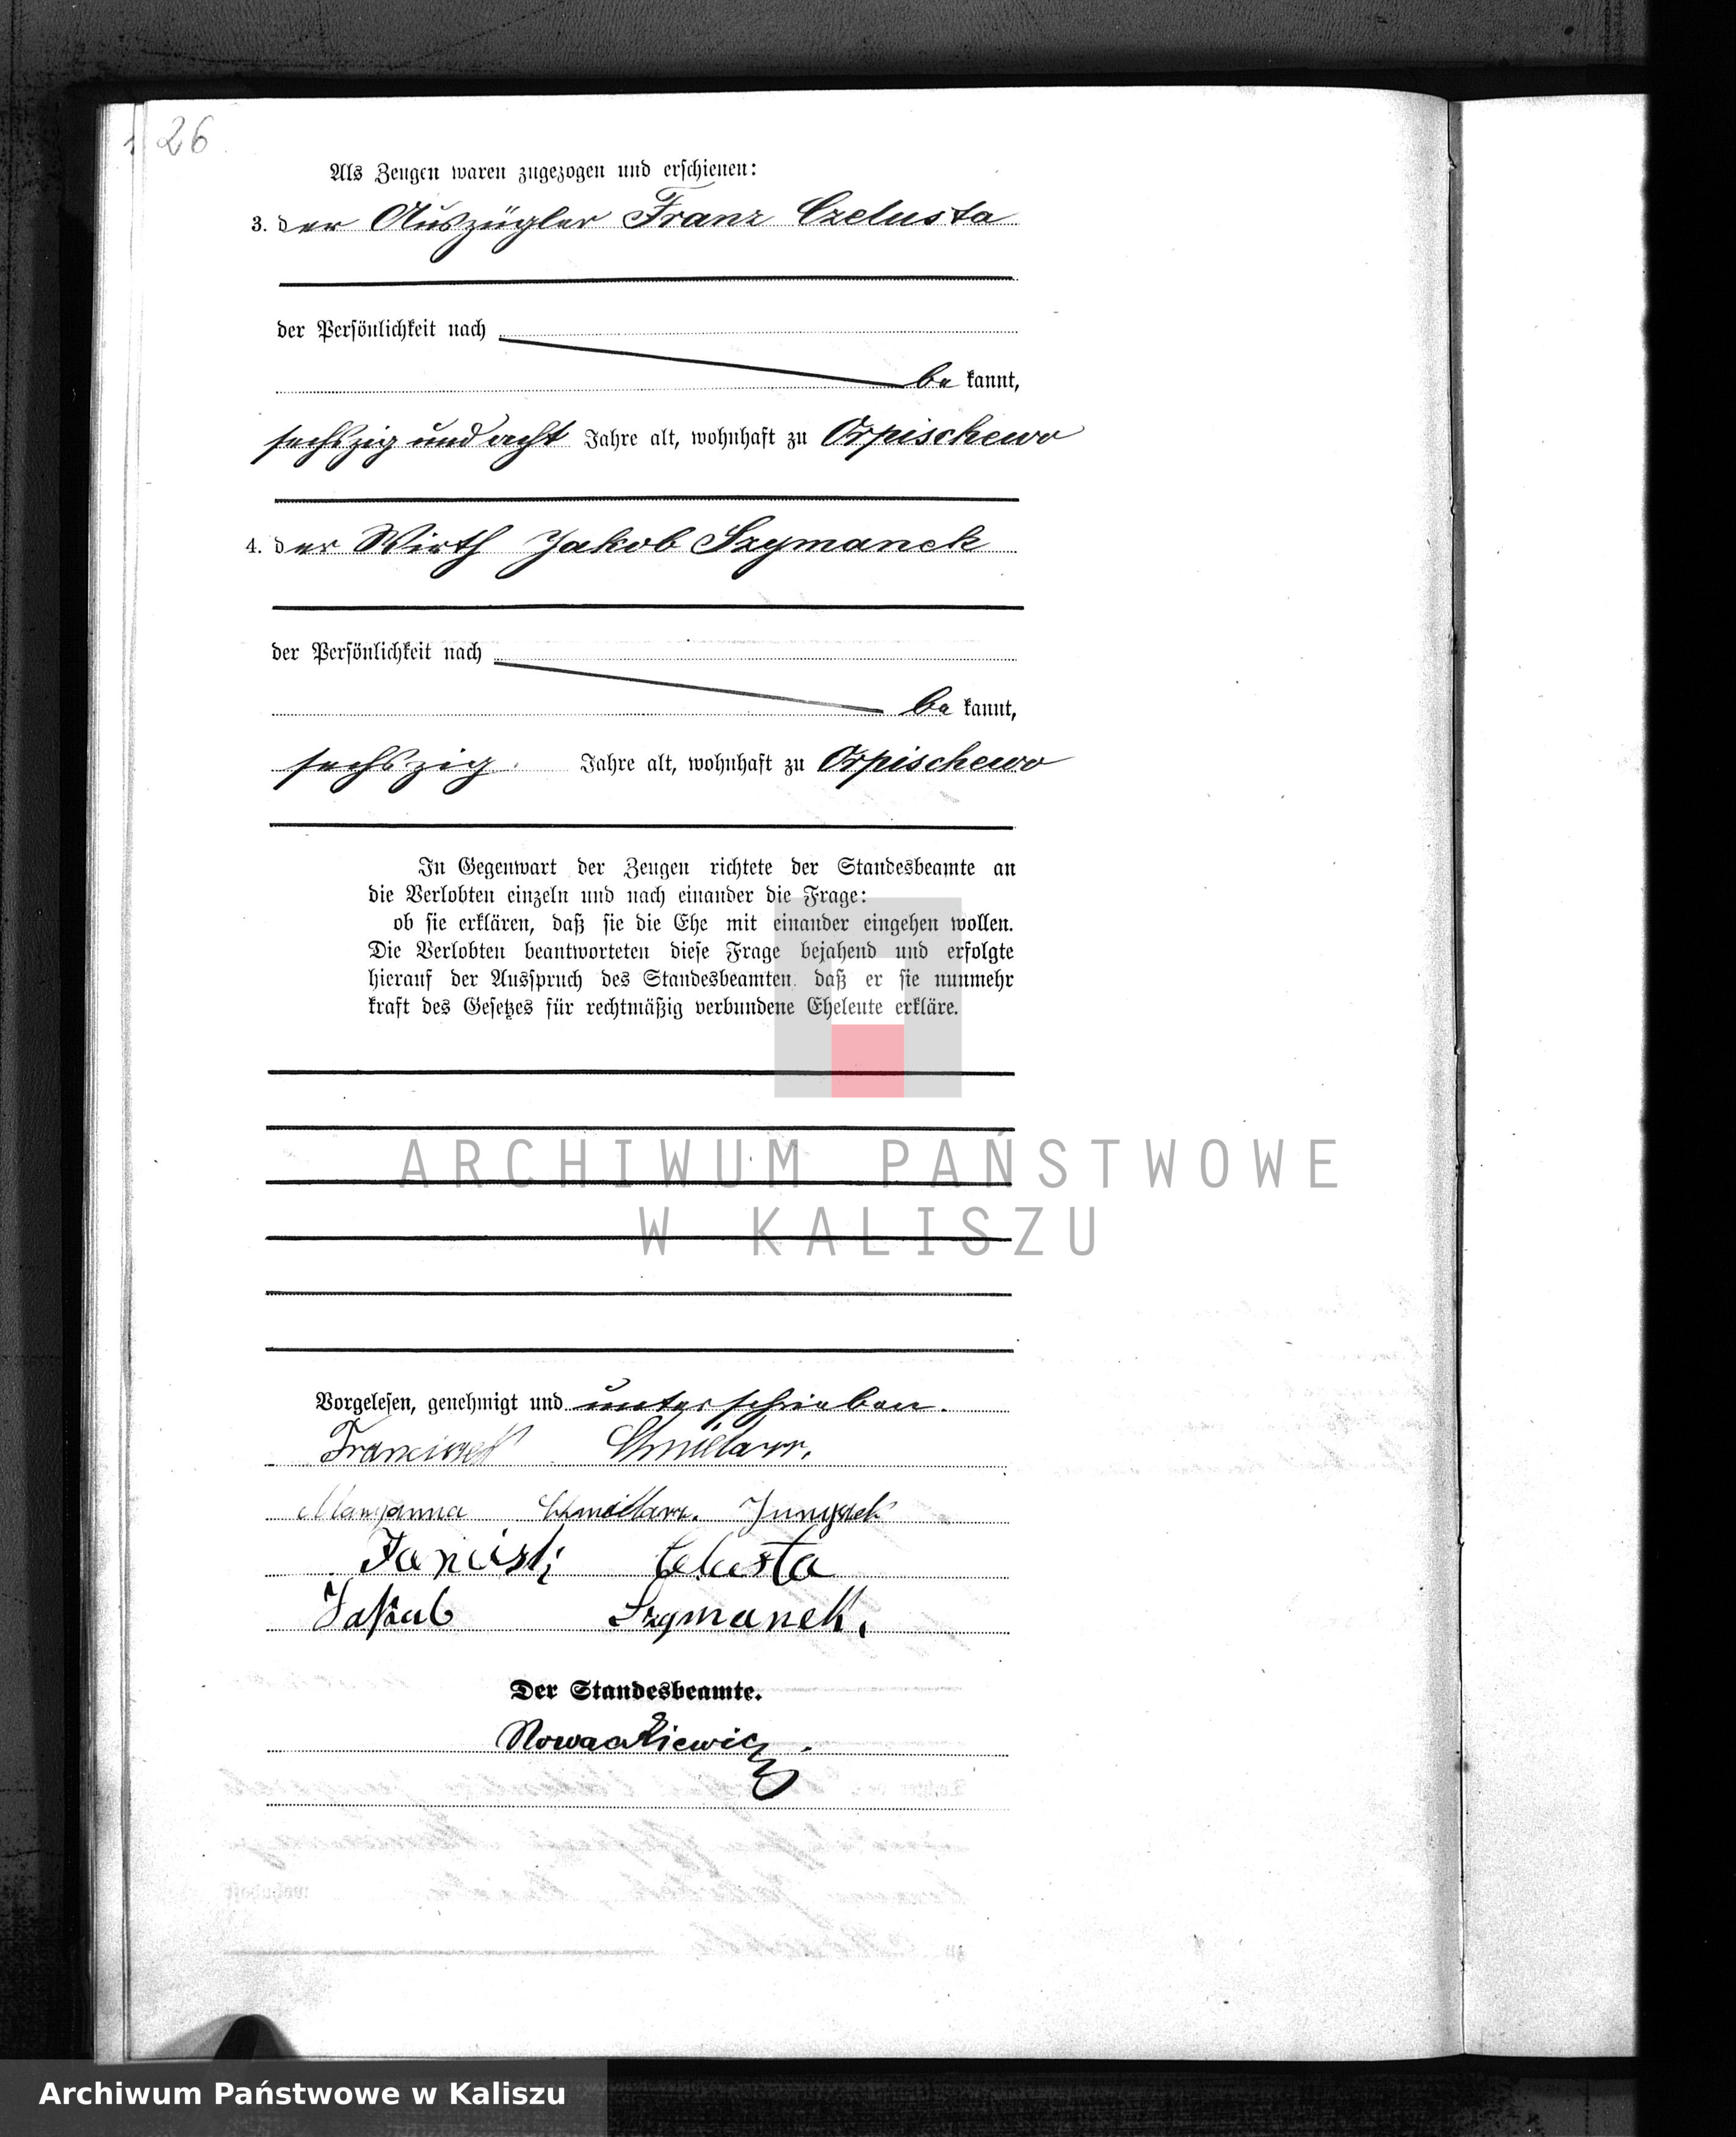 26
Als Zeugen waren zugezogen und erschienen:
3. der Auszügler Franz Czelusta
der Persönlichkeit nach
be kannt,
sechszig und acht Jahre alt, wohnhaft zu Orpischewo
4. der Wirth Jakob Szymanek
der Persönlichkeit nach
be kannt,
sechszig Jahre alt, wohnhaft zu Orpischewo
In Gegenwart der Zeugen richtete der Standesbeamte an
die Verlobten einzeln und nach einander die Frage:
ob sie erklären, daß sie die Ehe mit einander eingehen wollen.
Die Verlobten beantworteten diese Frage bejahend und erfolgte
hierauf der Ausspruch des Standesbeamten, daß er sie nunmehr
kraft des Gesetzes für rechtmäßig verbundene Eheleute erkläre.
ARCHIWUM PAŃSTWOWE
W KALISZU
Vorgelesen, genehmigt und unterschrieben.
Chmielarz.
Maryanna Chmielarz.
Celusta
Jakub Szymanek.
Der Standesbeamte.
Nowackiewicz.
Archiwum Państwowe w Kaliszu